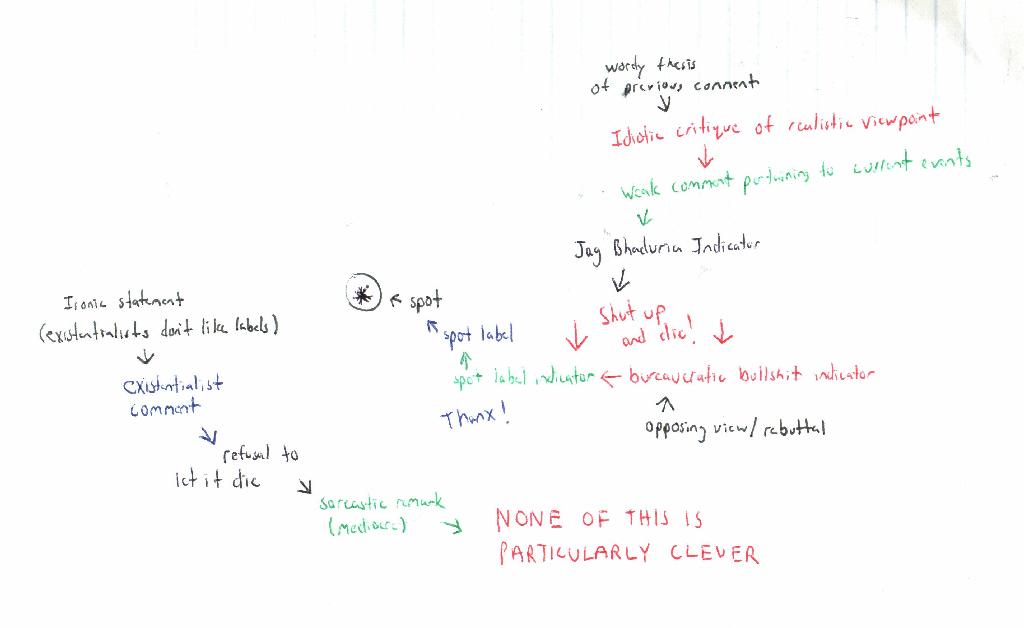 wordy thesis
of previous comment
Idiotic critique of realistic viewpoint
Weak comment pertaining to current events
Jag Bhaduria Indicator
Ironic statement
(existentialists don't like labels)
spot
Shut up
and die!
spot label
existentialist
comment
spot label indicator
bureaucratic bullshit indicator
Thanx!
opposing view/rebuttal
refusal to
let it die
sarcastic remark
(mediocre)
NONE OF THIS IS
PARTICULARLY CLEVER